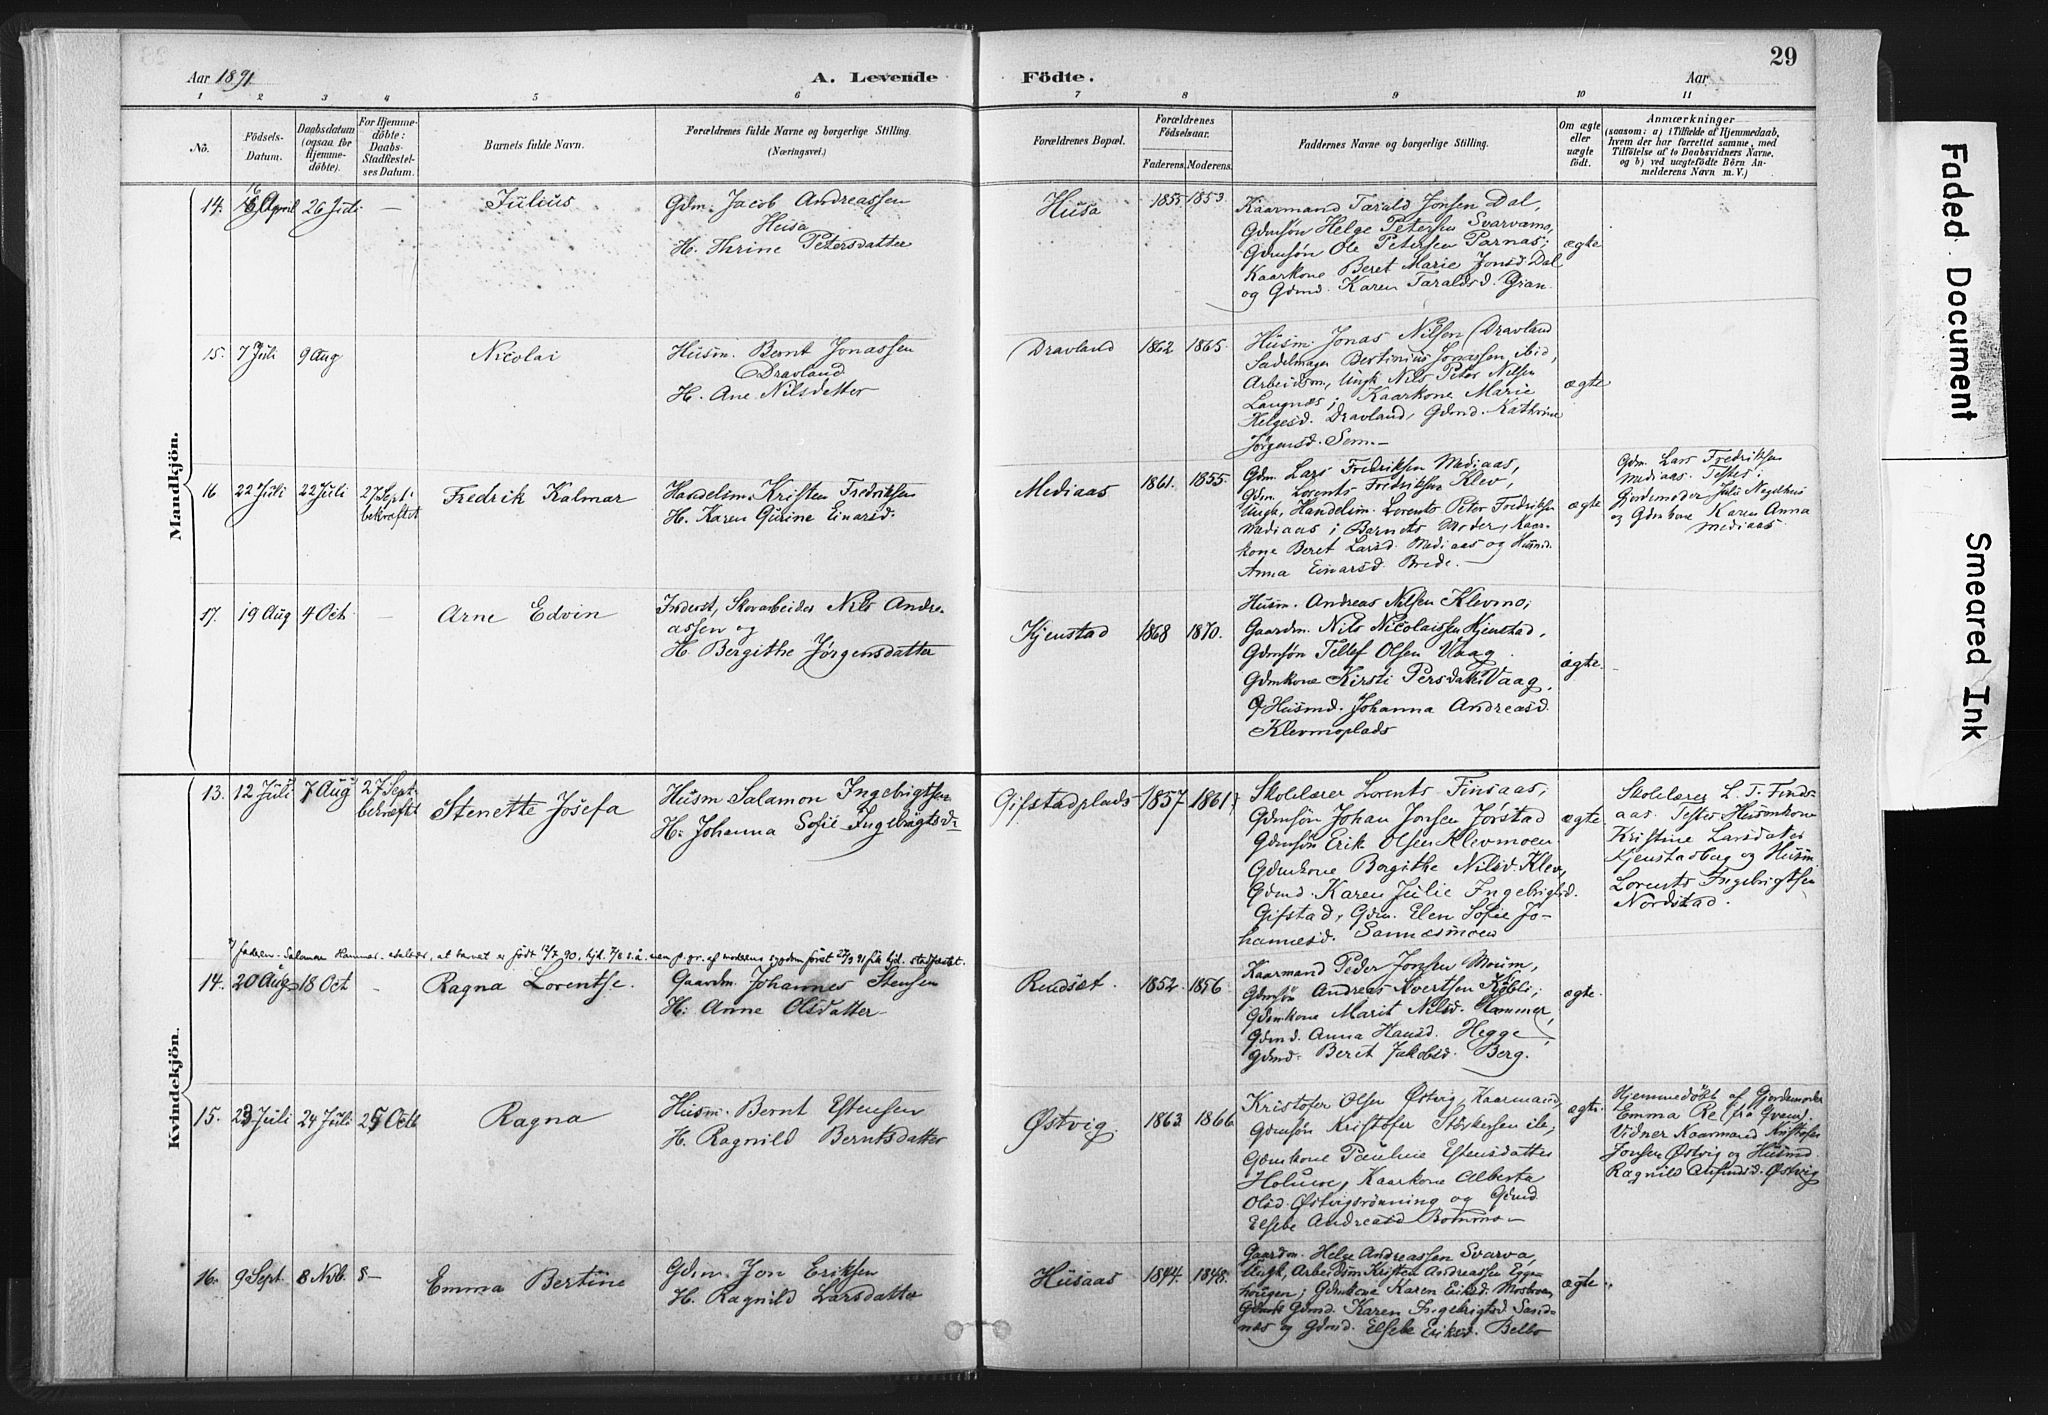 29
Aar 1891
A. Levende
Födte.
Aar
1 2 3 4 5 6 7 8 9 10 11
No.
Födsels-
Datum.
Daabsdatum
(ogsaa for
Hjemme-
döbte).
For Hjemme-
döbte:
Daabs-
Stadfæstel-
ses Datum.
Barnets fulde Navn.
Forældrenes fulde Navne og borgerlige Stilling.
(Næringsvei.)
Forældrenes Bopæl.
Forældrenes
Födselsaar.
Faderens. Moderens.
Faddernes Navne og borgerlige Stilling.
Om ægte
eller
uægte
födt.
Anmærkninger
(saasom: a) i Tilfælde af Hjemmedaab,
hvem der har forrettet samme, med
Tilföielse af to Daabsvidners Navne,
og b) ved uægtefödte Börn An-
melderens Navn m. V.)
Mandkjön.
14. 16 April 26 Juli - Julius
Gdm. Jacob Andreassen
Husa
H. Thrine Petersdatter
Husa 1855 1853
Kaarmand Tarald Jonsen Dal,
Gdmsøn Helge Petersen Svarvamo,
Gdmsøn Ole Petersen Parnas;
Kaarkone Beret Marie Jonsd. Dal
og Gdmd. Karen Taraldsd. Gran
ægte
15. 7 Juli 9 Aug Nicolai
Husm. Bernt Jonassen
Dravland
H. Ane Nilsdatter
Dravland 1862 1865.
Husm. Jonas Nilsen Dravland
Sadelmager Bertinius Jonassen, ibid,
Arbeidsm, Ungk. Nils Peter Nilsen
Langnæs; Kaarkone Marie
Helgesd. Dravland, Gdmd. Kathrine
Jørgensd. Sem.-
ægte
16 22 Juli 22 Juli 27 Sept.
bekræftet
Fredrik Kalmar
Handelsm. Kristen Fredriksen
H. Karen Gurine Einarsd.
Mediaas 1861. 1855.
Gdm. Lars Fredriksen Mediaas,
Gdm. Lorents Fredriksen Klev,
Ungk. Handelsm. Lorents Peter Fredriksen
Mediaas; Barnets Moder, Kaar-
kone Beret Larsd. Mediaas og Husmd.
Anna Einarsd. Brede.-
ægte
Gdm. Lars Fredriksen
Mediaas. Testes:
Gjordemoder Julie
og Gdmkone Karen Anna
Mediaas.
17. 19 Aug 4 Oct - Arne Edvin
Inderst, Skovarbeider Nils Andre-
assen og
H. Bergithe Jørgensdatter
Kjenstad 1868 1870.
Husm. Andreas Nilsen Klevmo,
Gaardm. Nils Nicolaissen Kjenstad,
Gdmsøn Tellef Olsen Vaag.
Gdmkone Kirsti Persdatter Vaag,
Husmd. Johanna Andreasd.
Klevmoplads
ægte. -
Kvindekjön.
13. 12 Juli 7 Aug 27 Sept
bekræftet
Stenette Josefa
Husm Salamon Ingebrigtsen
H: Johanna Sofie Ingebrigtsd.
Gifstadplads 1857 1861
Skolelærer Lorents Finsaas,
Gdmsøn Johan Jonsen Jørstad
Gdmsøn Erik Olsen Klevmoen
Gdmkone Bergithe Nilsd. Klev,
Gdmd. Karen Julie Ingebrigtsd.
Gifstad, Gdm. Elen Sofie Jo-
hannesd. Sannæsmoen
ægte.
Skolelærer L. T. Finds-
aas. Testes Husmkone
Kristine Larsdatter
Kjenstadberg og Husm.
Lorents Ingebrigtsen
Nordstad.
faderen Salamon kommer, at barnet er født 12/7 90, hjd. 7/8 s.å. men p. gr. af moderens sygdom först 27/9 91 fik hjd. stadfæstet.
14. 20 Aug 18 Oct - Ragna Lorentse.
Gaardm. Johannes Stensen
H: Anne Olsdatter
Rudsæt. 1852. 1856
Kaarmand Peder Jonsen Moum,
Gdmsøn Andreas Evertsen Kjøli;
Gdmkone Marit Nilsd. Hammer,
Gdmd. Anna Hansd. Hegge,
Gdmd. Beret Jakobsd. Berg.
ægte.
15. 23 Juli 24 Juli 25 Octb Ragna
Husm. Bernt Estensen
H. Ragnild Berntsdatter
Østvig. 1863. 1866
Kristofer Olsen Østvig, Kaarmand,
Gdmsøn Kristofer Størkersen ile;
Gdmkone Pauline Estensdatter
Holuwe, Kaarkone Alberta
Olsd. Østvigsrønning og Gdmd.
Elsebe Andreasd. Bommo-
ægte.
Hjemmedøbt af Gjordemoder
Emma Re (fra Qvam).
Vidner Kaarmand Kristofer
Jonsen Østvig og Husmd.
Ragnild Østvig
16. 9 Sept. 8 Nvb. - Emma Bertine
Gdm. Jon Eriksen
H. Ragnild Larsdatter
Husaas 1844. 1848.
Gaardm. Helge Andreassen Svarva,
Ungk, Arbeidsm Kristen Andreassen Egge-
hougen; Gdmkone Karen Eriksd. Mosbroen,
Gdmd. Karen Ingebrigtsd. Sand-
næs og Gdmd. Elsebe Eriksd. Belbo
ægte.
Faded Document
Smeared Ink